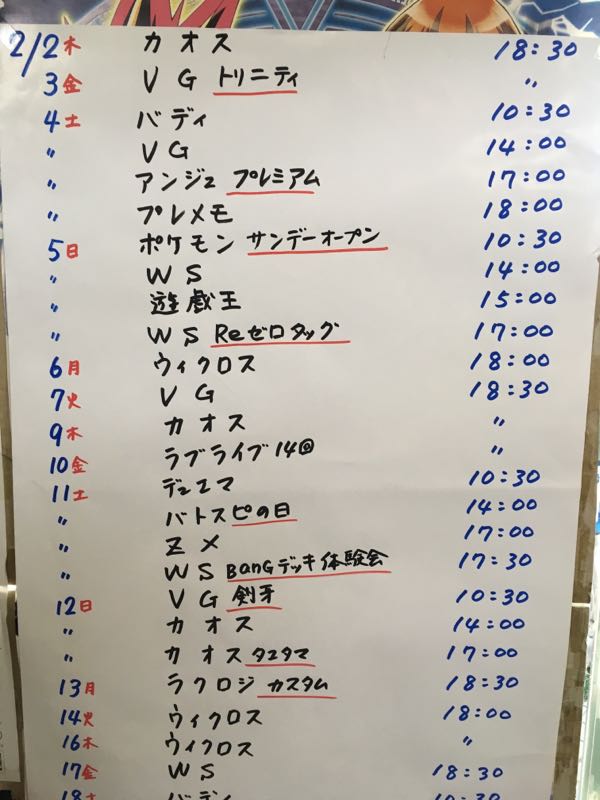 2/2木 カオス 18:30
3金 VG トリニティ 〃
4土 バディ 10:30
〃 VG 14:00
〃 アンジュ プレミアム 17:00
〃 プレメモ 18:00
5日 ポケモン サンデーオープン 10:30
〃 WS 14:00
〃 遊戯王 15:00
〃 WS Reゼロタッグ 17:00
6月 ウィクロス 18:00
7火 VG 18:30
9木 カオス 〃
10金 ラブライブ14@ 〃
11土 デュエマ 10:30
〃 バトスピの日 14:00
〃 ZX 17:00
〃 WS BanGデッキ体験会 17:30
12日 VG 剣牙 10:30
〃 カオス 14:00
〃 カオス タユタマ 17:00
13月 ラクロジ カスタム 18:30
14火 ウィクロス 18:00
16木 ウィクロス 〃
17金 WS 18:30
18土 バディ 10:30